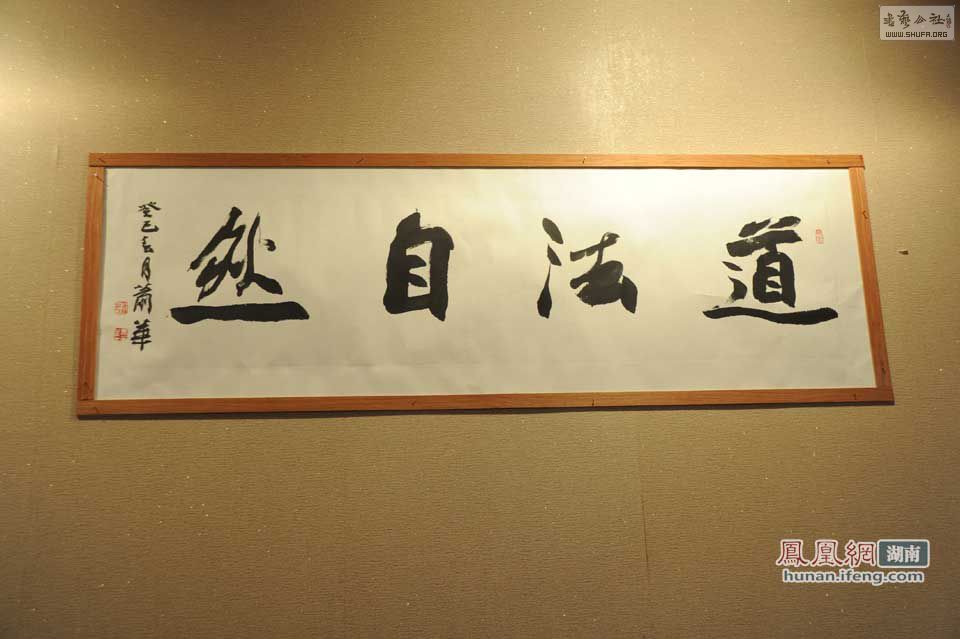 道法自然
癸巳春月蕭華
書藝公社
WWW.SHUFA.ORG
鳳凰網 湖南
hunan.ifeng.com